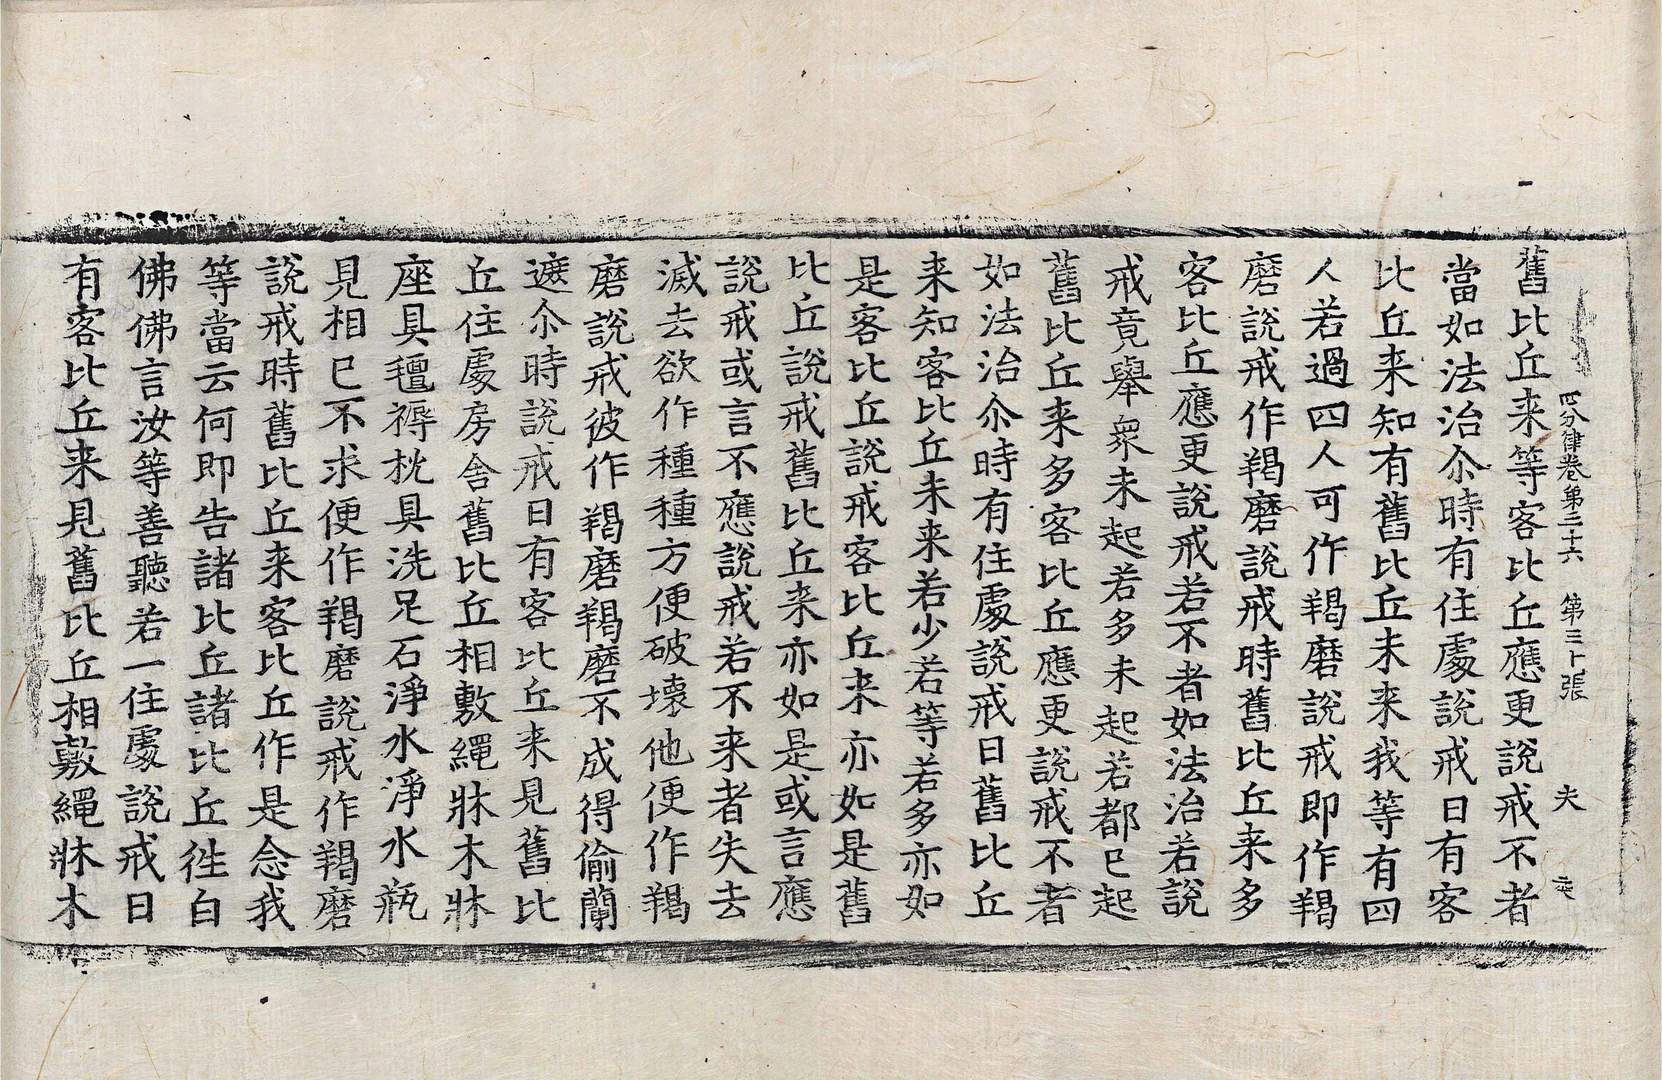 舊比丘来等客比丘應更說戒不者
四分律卷第三十六 第三十張 夫
當如法治尒時有住處說戒日有客
比丘来知有舊比丘未来我等有四
人若過四人可作羯磨說戒即作羯
磨說戒作羯磨說戒時舊比丘来多
客比丘應更說戒若不者如法治若說
戒竟舉衆未起若多未起若都已起
舊比丘来多客比丘應更說戒不者
如法治尒時有住處說戒日舊比丘
来知客比丘未来若少若等若多亦如
是客比丘說戒客比丘来亦如是舊
比丘說戒舊比丘来亦如是或言應
說戒或言不應說戒若不来者失去
滅去欲作種種方便破壞他便作羯
磨說戒彼作羯磨羯磨不成得偷蘭
遮尒時說戒日有客比丘来見舊比
丘住處房舍舊比丘相敷繩牀木牀
座具氊褥枕具洗足石淨水淨水瓶
見相已不求便作羯磨說戒作羯磨
說戒時舊比丘来客比丘作是念我
等當云何即告諸比丘諸比丘徃白
佛佛言汝等善聽若一住處說戒日
有客比丘来見舊比丘相敷繩牀木